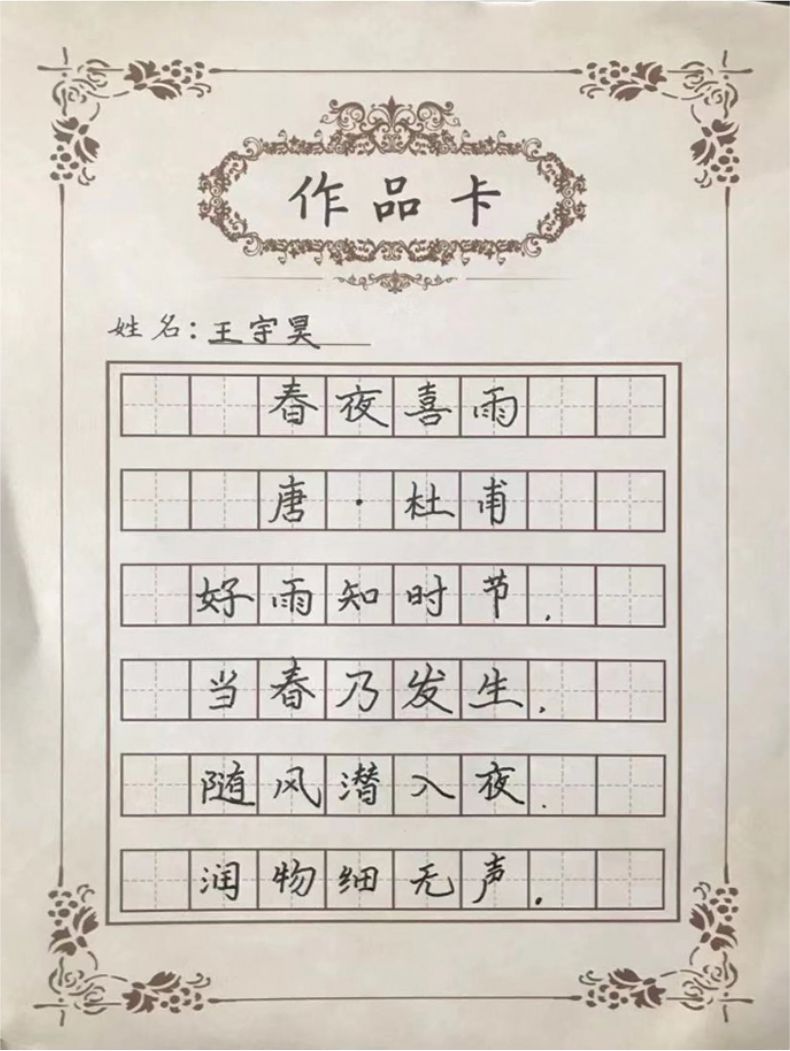 作品卡
姓名：王宇昊
春夜喜雨
唐·杜甫
好雨知时节.
当春乃发生.
随风潜入夜.
润物细无声.